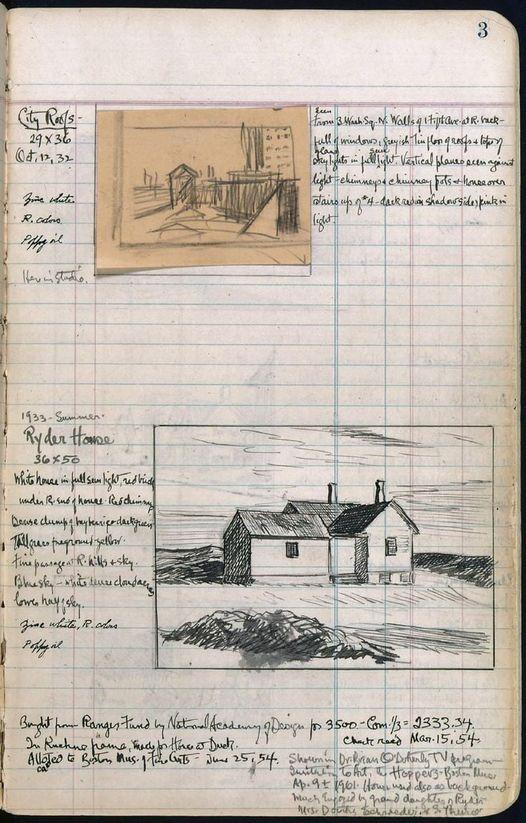 3
City Roofs -
29 x 36
Oct, 12, 32
Zinc white
R. colors
Poppy oil
Here in Studio.
Seen
From 3 Wash. Sq. N. Walls of 1 Fifth Ave. at R. back-
full of windows, greyish Tin floor of roofs & tops of
skylights in full light. Vertical planes seen against
light - chimneys & chimney pots & house over
stairs up of #4 - dark red in shadow side, pink in
light.
1933 - Summer.
Ryder House
36 x 50
White house in full sun light, red brick
under R. end of house. Red chimney
Dense clump of bayberries dark green
Tall grass foreground yellow.
Fine passage at R. hills & sky.
Blue sky - white dense clouds
lower half of sky.
Zinc white, R. colors
Poppy oil
Bought from Ranger Fund by National Academy of Design for 3500 - Com. 1/3 = 2333.34.
In Kuehne frame, ready for House at Dusk.
Check recd Mar. 15, 54.
Allotted to Boston Mus. of Fine Arts - June 25, 54.
Shown in Dr. Brian O'Doherty TV program
to Art. The Hoppers - Boston Mus.
Ap. 9 1961. House used also as background
Much enjoyed by grand daughter of Ryder
Mrs.